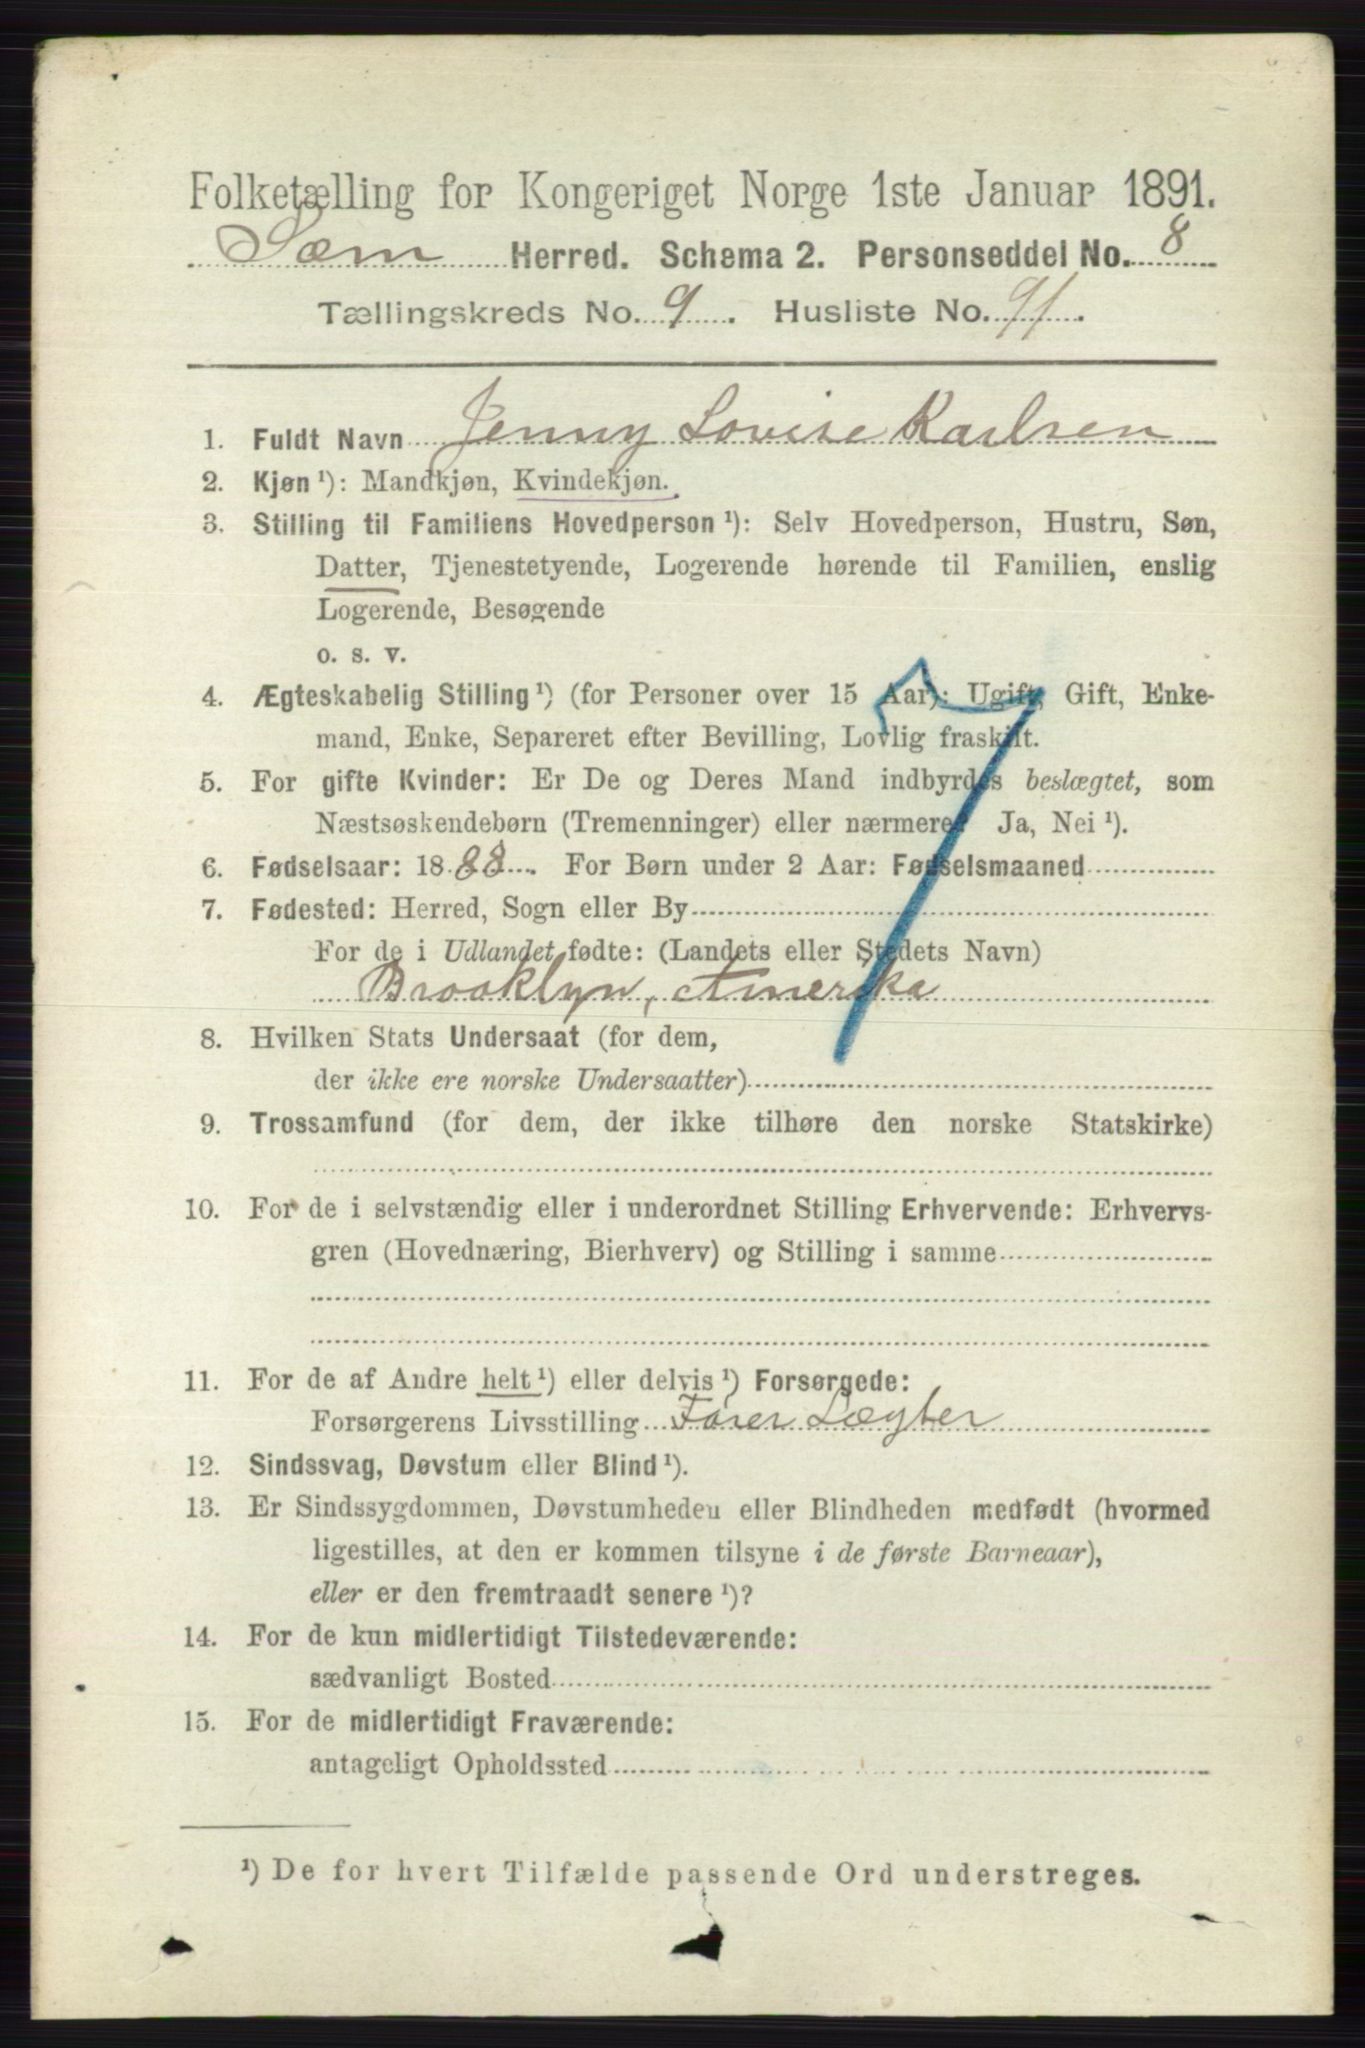 Folketælling for Kongeriget Norge 1ste Januar 1891.
Sæm Herred. Schema 2. Personseddel No. 8
Tællingskreds No. 9. Husliste No. 91.
1. Fuldt Navn Jenny Lovise Karlsen
2. Kjøn ¹): Mandkjøn, Kvindekjøn.
3. Stilling til Familiens Hovedperson ¹): Selv Hovedperson, Hustru, Søn,
Datter, Tjenestetyende, Logerende hørende til Familien, enslig
Logerende, Besøgende
o. s. v.
4. Ægteskabelig Stilling ¹) (for Personer over 15 Aar): Ugift, Gift, Enke-
mand, Enke, Separeret efter Bevilling, Lovlig fraskilt.
5. For gifte Kvinder: Er De og Deres Mand indbyrdes beslægtet, som
Næstsøskendebørn (Tremenninger) eller nærmere? Ja, Nei ¹).
6. Fødselsaar: 1888. For Børn under 2 Aar: Fødselsmaaned
7. Fødested: Herred, Sogn eller By
For de i Udlandet fødte: (Landets eller Stedets Navn)
Brooklyn, Amerika
8. Hvilken Stats Undersaat (for dem,
der ikke ere norske Undersaatter)
9. Trossamfund (for dem, der ikke tilhøre den norske Statskirke)
10. For de i selvstændig eller i underordnet Stilling Erhvervende: Erhvervs-
gren (Hovednæring, Bierhverv) og Stilling i samme
11. For de af Andre helt ¹) eller delvis ¹) Forsørgede:
Forsørgerens Livsstilling
12. Sindssvag, Døvstum eller Blind ¹).
13. Er Sindssygdommen, Døvstumheden eller Blindheden medfødt (hvormed
ligestilles, at den er kommen tilsyne i de første Barneaar),
eller er den fremtraadt senere ¹)?
14. For de kun midlertidigt Tilstedeværende:
sædvanligt Bosted
15. For de midlertidigt Fraværende:
antageligt Opholdssted
¹) De for hvert Tilfælde passende Ord understreges.